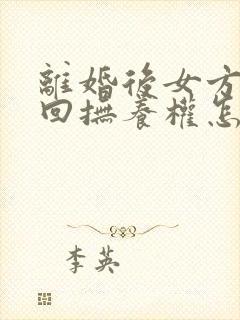 離婚後女方
回撫養權怎
李英